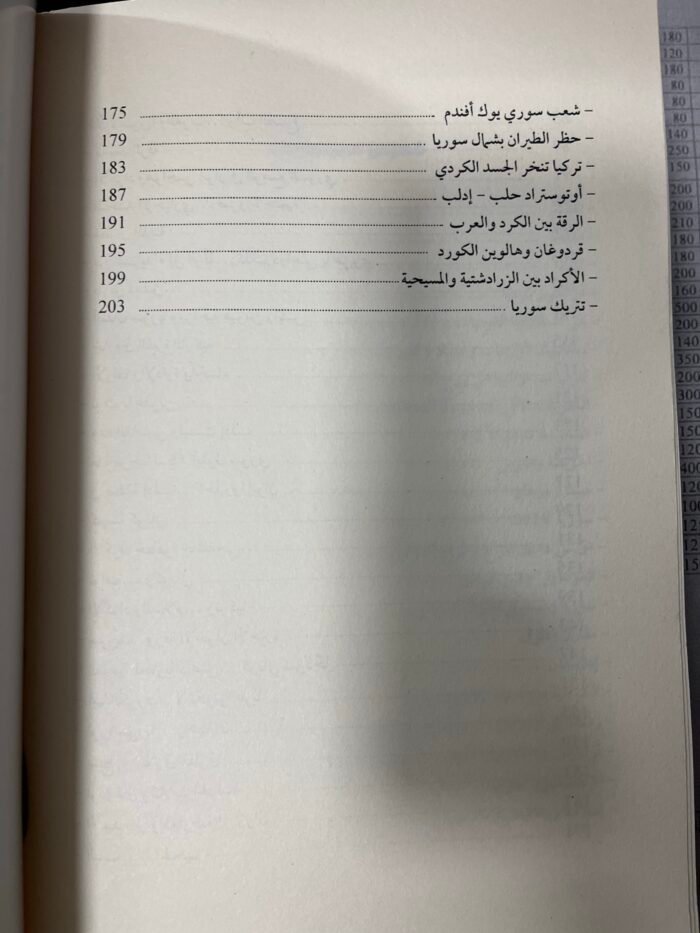 - شعب سوري يوك أفندم ........ 175
- حظر الطيران بشمال سوريا ........ 179
- تركيا تنخر الجسد الكردي ........ 183
- أوتوستراد حلب - إدلب ........ 187
- الرقة بين الكرد والعرب ........ 191
- قردوغان وهالوين الكورد ........ 195
- الأكراد بين الزرادشتية والمسيحية ........ 199
- تتريك سوريا ........ 203
180
120
180
80
80
80
140
250
150
200
200
210
180
180
200
160
500
200
140
350
200
300